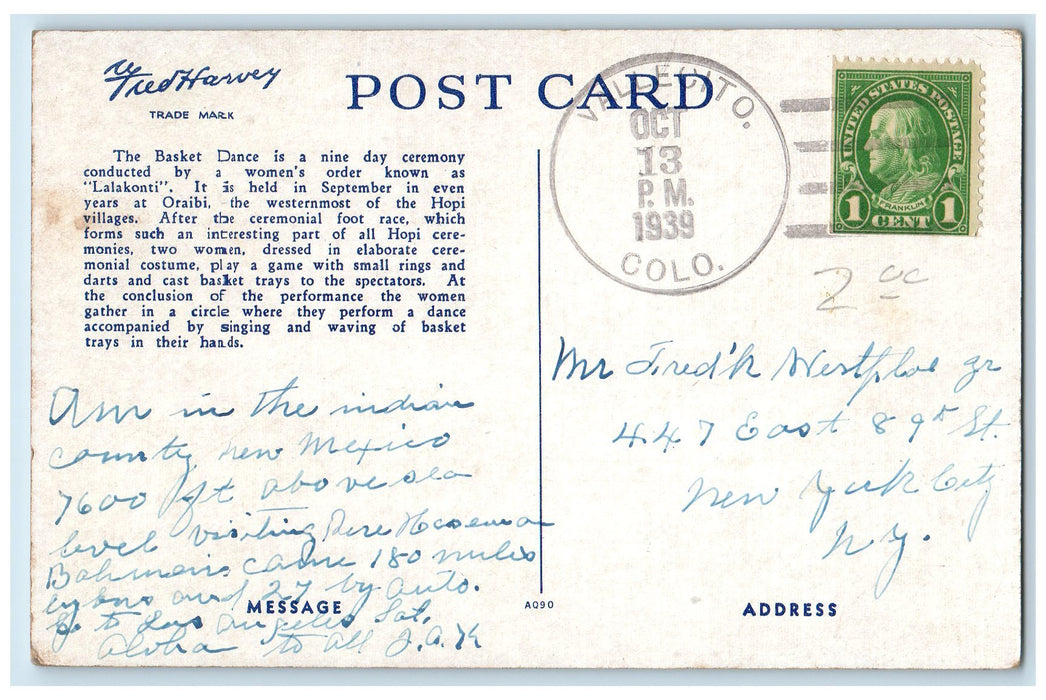 Fred Harvey
TRADE MARK
POST CARD
The Basket Dance is a nine day ceremony
conducted by a women's order known as
"Lalakonti". It is held in September in even
years at Oraibi, the westernmost of the Hopi
villages. After the ceremonial foot race, which
forms such an interesting part of all Hopi cere-
monies, two women, dressed in elaborate cere-
monial costume, play a game with small rings and
darts and cast basket trays to the spectators. At
the conclusion of the performance the women
gather in a circle where they perform a dance
accompanied by singing and waving of basket
trays in their hands.
Am in the indian
county, new Mexico
7600 ft above sea
level visiting
came 180 miles
and 27 by auto.
to Los Angeles Sat.
Aloha to all J.A.K
MESSAGE
AQ90
VALLECITO.
OCT
13
P.M.
1939
COLO.
UNITED STATES POSTAGE
FRANKLIN
1 CENT 1
2 00
Mr Fred'k Jr
447 East 89th St.
New York City
N.Y.
ADDRESS